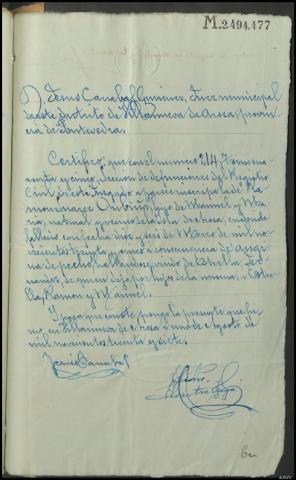 M.2494.477
D. Jesus Canabal Gimenez, Juez municipal
de este distrito de Villanueva de Arosa, provin-
cia de Pontevedra.
Certifico: que con el numero 214, Tomo cua-
renta y cinco, Seccion de defunciones del Registro
Civil de este Juzgado aparece inscripta la de Ra-
mon, hijo de Manuel y Ma-
ria, natural y vecino de la Isla de Arosa, en donde
fallecio con fecha diez y seis de Marzo de mil no-
vecientos treinta, a consecuencia de angina
de pecho, hallandose viudo de
de quien dejo por hijos de la misma, a
Ramon y Manuel.
Y para que conste pongo la presente que fir-
mo, en Villanueva de Arosa a uno de Agosto de
mil novecientos treinta y siete.
Jesus Canabal